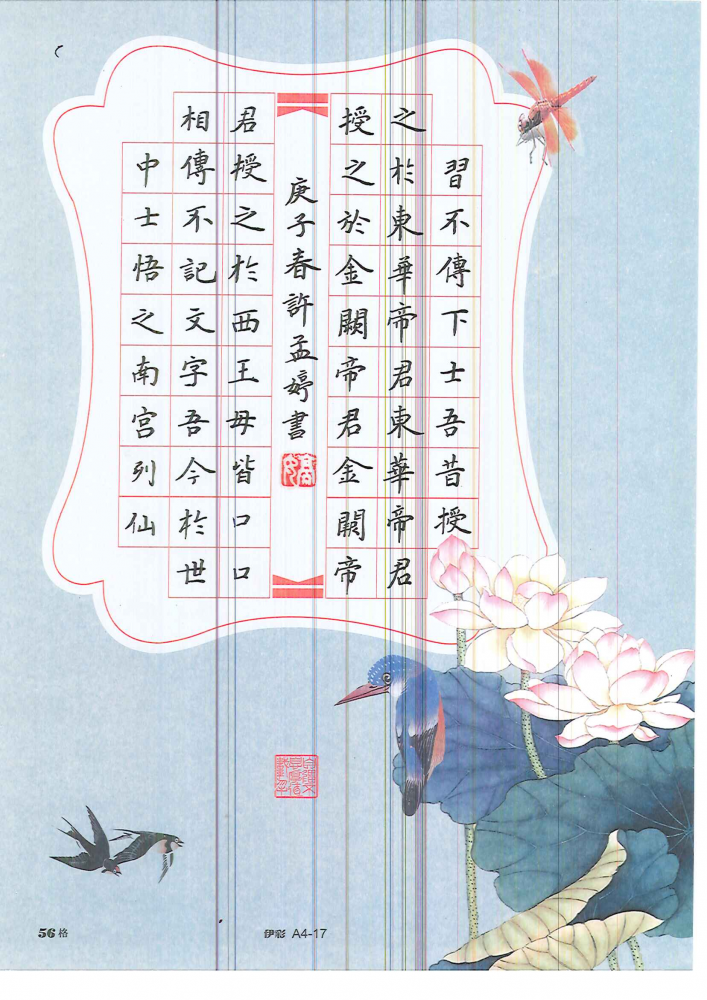 習不傳下士吾昔授
之於東華帝君東華帝君
授之於金闕帝君金闕帝
庚子春許孟婷書
君授之於西王母皆口口
相傳不記文字吾今於世
中士悟之南宫列仙
56格
伊彩 A4-17